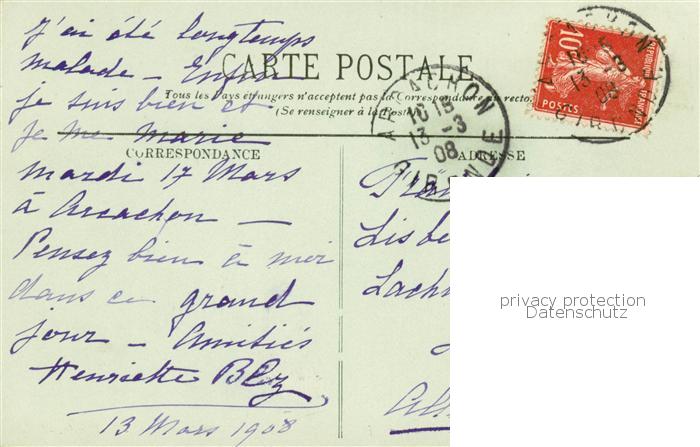 J'ai été longtemps
malade - Enfin
je suis bien et
je me marie
mardi 17 Mars
à Arcachon -
Pensez bien à moi
dans ce grand
jour - Amitiés
Henriette
13 Mars 1908
CARTE POSTALE
Tous les Pays étrangers n'acceptent pas la Correspondance au recto.
(Se renseigner à la Poste)
CORRESPONDANCE
ADRESSE
ARCACHON
10 15
13 - 3
08
GIRONDE
REPUBLIQUE FRANCAISE
10
POSTES
privacy protection
Datenschutz